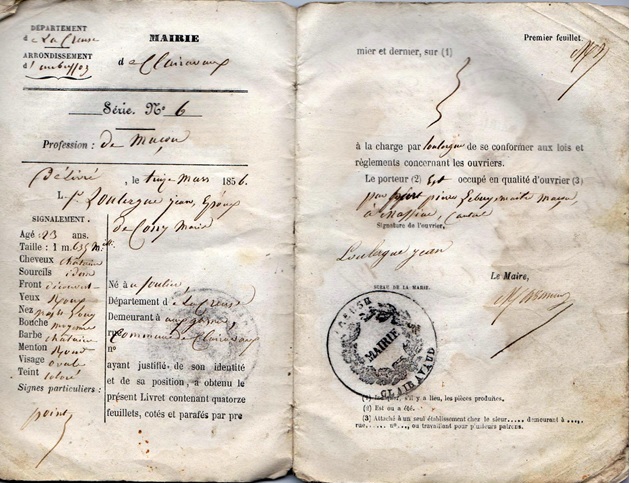 DÉPARTEMENT
de La Creuse
ARRONDISSEMENT
d'aubusson
MAIRIE
de Clairavaux
Série. No 6
Profession : de maçon
Délivré, le treize mars 1856.
L Sr Loulergue jean, Époux
de Cony Marie
SIGNALEMENT.
Agé : 23 ans.
Taille : 1 m. 635 mill.
Cheveux chatains
Sourcils idem
Front découvert
Yeux Roux
Nez long
Bouche moyenne
Barbe chataine
Menton Rond
Visage ovale
Teint coloré
Signes particuliers :
point
Né à
Département d e La Creuse
Demeurant à
commune de Clairavaux
n°
ayant justifié de son identité
et de sa position, a obtenu le
présent Livret contenant quatorze
feuillets, cotés et parafés par pre
Premier feuillet.
mier et dernier, sur (1)
à la charge par loulergue de se conformer aux lois et
règlements concernant les ouvriers.
Le porteur (2) Est occupé en qualité d'ouvrier (3)
pierre maitre maçon
à Cantal
Signature de l'ouvrier.
Loulergue jean
Le Maire,
SCEAU DE LA MAIRIE.
MAIRIE
CLAIRAVAUD
(1) Indiquer, s'il y a lieu, les pièces produites.
(2) Est ou a été.
(3) Attaché à un seul établissement chez le sieur..... demeurant à ...,
rue..... n°..., ou travaillant pour plusieurs patrons.